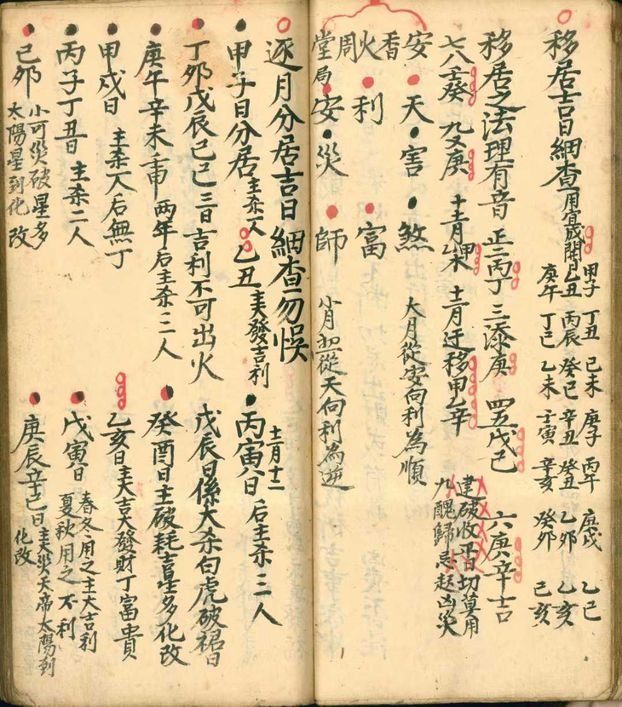 移居吉日細查用宜成開日
甲子 丁丑 己未 庚子 丙午 庚戌 乙巳
乙丑 丙辰 癸巳 辛丑 癸丑 乙卯 乙亥
庚午 丁巳 乙未 壬寅 辛亥 癸卯 己亥
移居之法理有音 正二丙丁 三添庚 四五戊己 六庚辛吉
七八壬癸 九艾庚 十十一月甲乙未 十二月迁移甲乙辛
建破收平日切莫用
九醜歸忌起凶災
安香火周堂局
安 天 利
安 災 害 煞
師 富
大月從安向利為順
小月從天向利為逆
逐月分居吉日細查勿悞
甲子日分居主杀人 乙丑主大發吉利
丙寅日后主杀二人
十二月十二
丁卯戊辰己巳三日吉利不可出火
戊辰日係大杀白虎破裙日
庚午辛未壬申兩年后主杀二人
癸酉日主破耗吉星多化改
甲戌日主杀人后無丁
乙亥日主大吉大發財丁富貴
丙子丁丑日主杀二人
戊寅日春冬用之主大吉利
夏秋用之不利
己卯小可災破星多
太陽星到化改
庚辰辛巳日主災天帝太陽到
化改